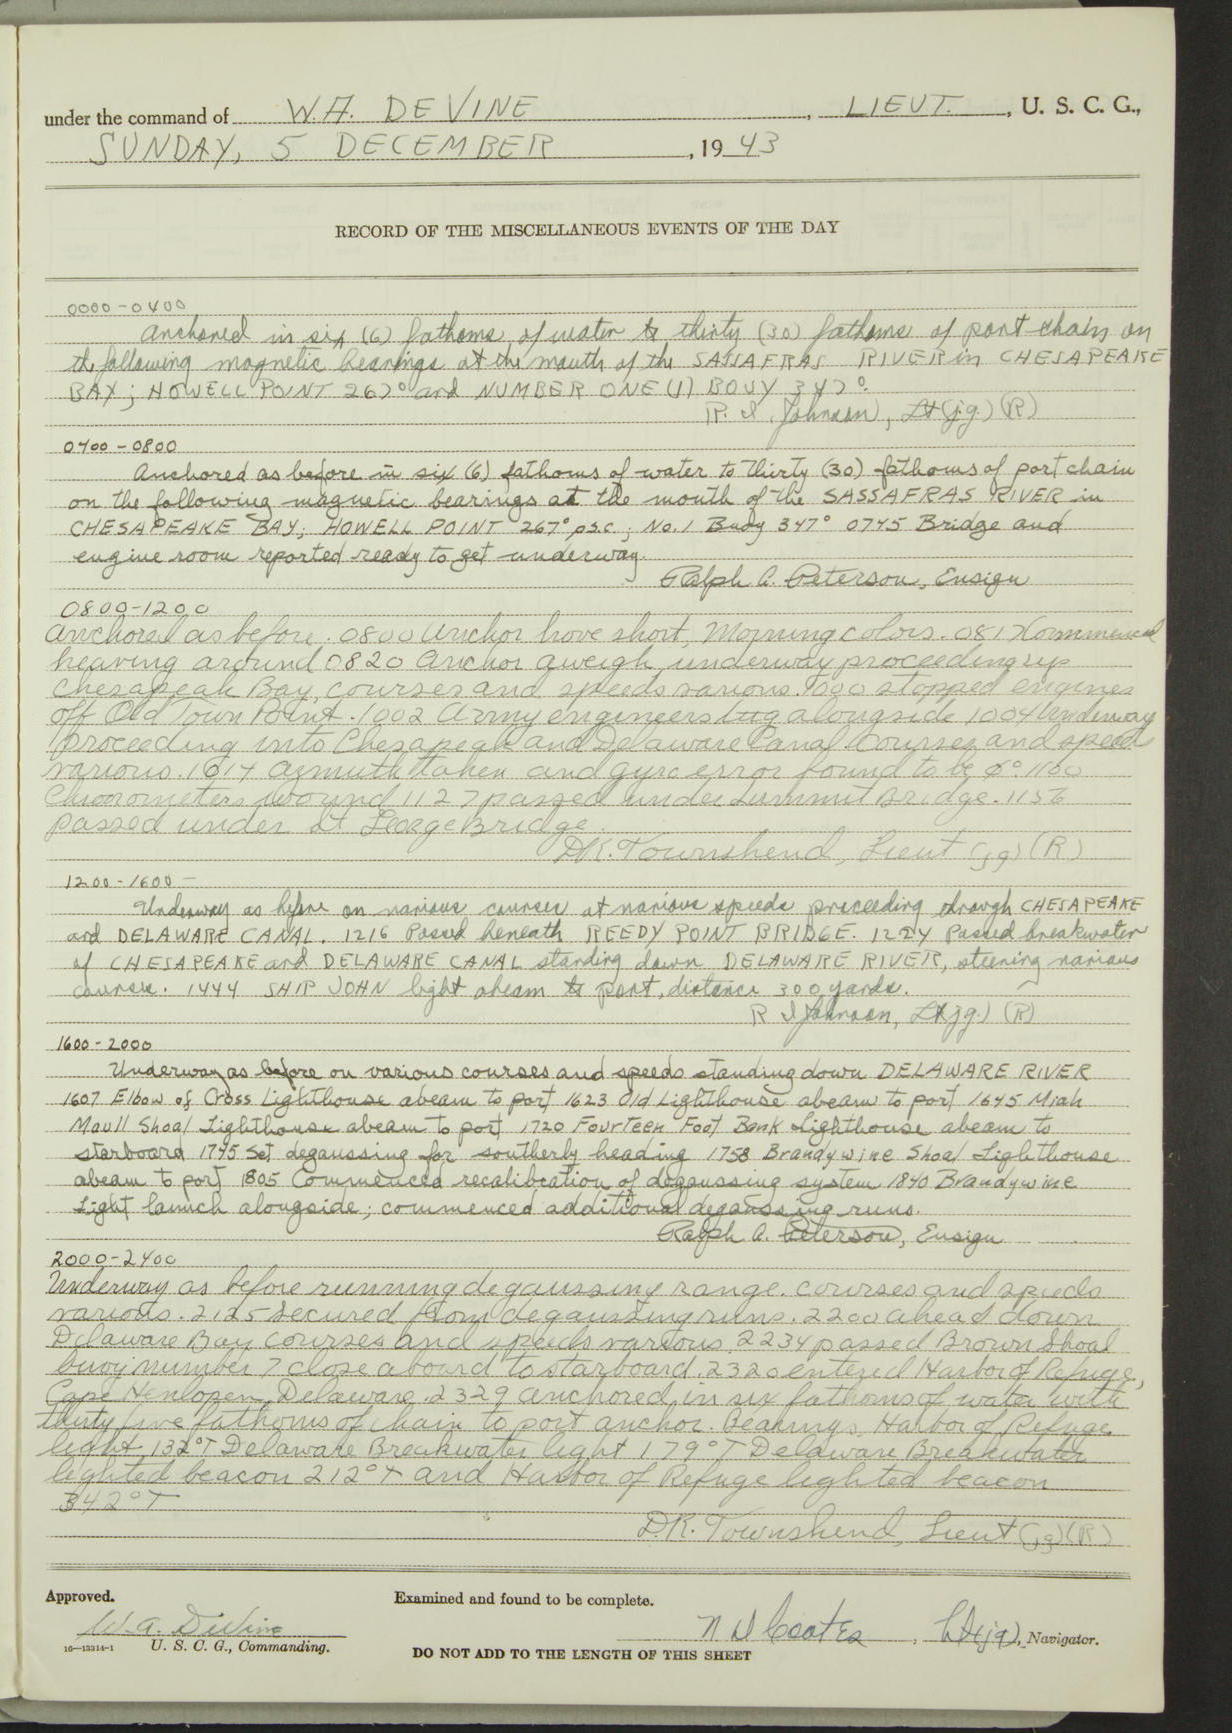 under the command of W.A. DEVINE, LIEUT., U. S. C. G.,
SUNDAY, 5 DECEMBER, 1943
RECORD OF THE MISCELLANEOUS EVENTS OF THE DAY
0000-0400
Anchored in six (6) fathoms of water to thirty (30) fathoms of port chain on
the following magnetic bearings at the mouth of the SASSAFRAS RIVER in CHESAPEAKE
BAY; HOWELL POINT 267° and NUMBER ONE (1) BOUY 347°.
R. I. Johnson, Lt(j.g.) (R)
0400-0800
Anchored as before in six (6) fathoms of water to thirty (30) fathoms of port chain
on the following magnetic bearings at the mouth of the SASSAFRAS RIVER in
CHESAPEAKE BAY; HOWELL POINT 267° p.s.c.; No.1 Buoy 347° 0745 Bridge and
engine room reported ready to get underway.
Ralph A. Peterson, Ensign
0800-1200
Anchored as before. 0800 Anchor hove short, Morning colors. 0817 Commenced
heaving around 0820 Anchor aweigh, underway proceeding up
Chesapeak Bay, courses and speeds various. 1000 stopped engines
off Old Town Point. 1002 Army engineers tug alongside 1004 Underway
proceeding into Chesapeak and Delaware Canal Courses and speed
various. 1017 azmuth taken and gyro error found to be 0° 1100
Chronometers wound 1127 passed under Summit Bridge. 1156
passed under St George Bridge.
D.K. Townshend, Lieut (jg) (R)
1200-1600-
Underway as before on various courses at various speeds proceeding through CHESAPEAKE
and DELAWARE CANAL. 1216 Passed beneath REEDY POINT BRIDGE. 1224 Passed breakwater
of CHESAPEAKE and DELAWARE CANAL standing down DELAWARE RIVER, steering various
courses. 1444 SHIP JOHN light abeam to port, distance 300 yards.
R I Johnson, Lt(jg.) (R)
1600-2000
Underway as before on various courses and speeds standing down DELAWARE RIVER
1607 Elbow of Cross Lighthouse abeam to port 1623 Old Lighthouse abeam to port 1645 Miah
Maull Shoal Lighthouse abeam to port 1720 Fourteen Foot Bank Lighthouse abeam to
starboard 1745 Set degaussing for southerly heading 1758 Brandywine Shoal Lighthouse
abeam to port 1805 Commenced recalibration of degaussing system 1840 Brandywine
Light launch alongside; commenced additional degaussing runs.
Ralph A. Peterson, Ensign
2000-2400
Underway as before running degaussing range. courses and speeds
various. 2125 secured from degaussing runs. 2200 ahead down
Delaware Bay courses and speeds various. 2234 passed Brown Shoal
buoy number 7 close aboard to starboard. 2320 entered Harbor of Refuge,
Cape Henlopen, Delaware. 2329 anchored in six fathoms of water with
thirty five fathoms of chain to port anchor. Bearings, Harbor of Refuge
light, 132°T Delaware Breakwater light 179°T Delaware Breakwater
lighted beacon 212°T and Harbor of Refuge lighted beacon
342°T
D.K. Townshend, Lieut (jg) (R)
Approved. Examined and found to be complete.
W. A. DeVine N D Coates, Lt(jg), Navigator.
16-13314-1 U. S. C. G., Commanding.
DO NOT ADD TO THE LENGTH OF THIS SHEET